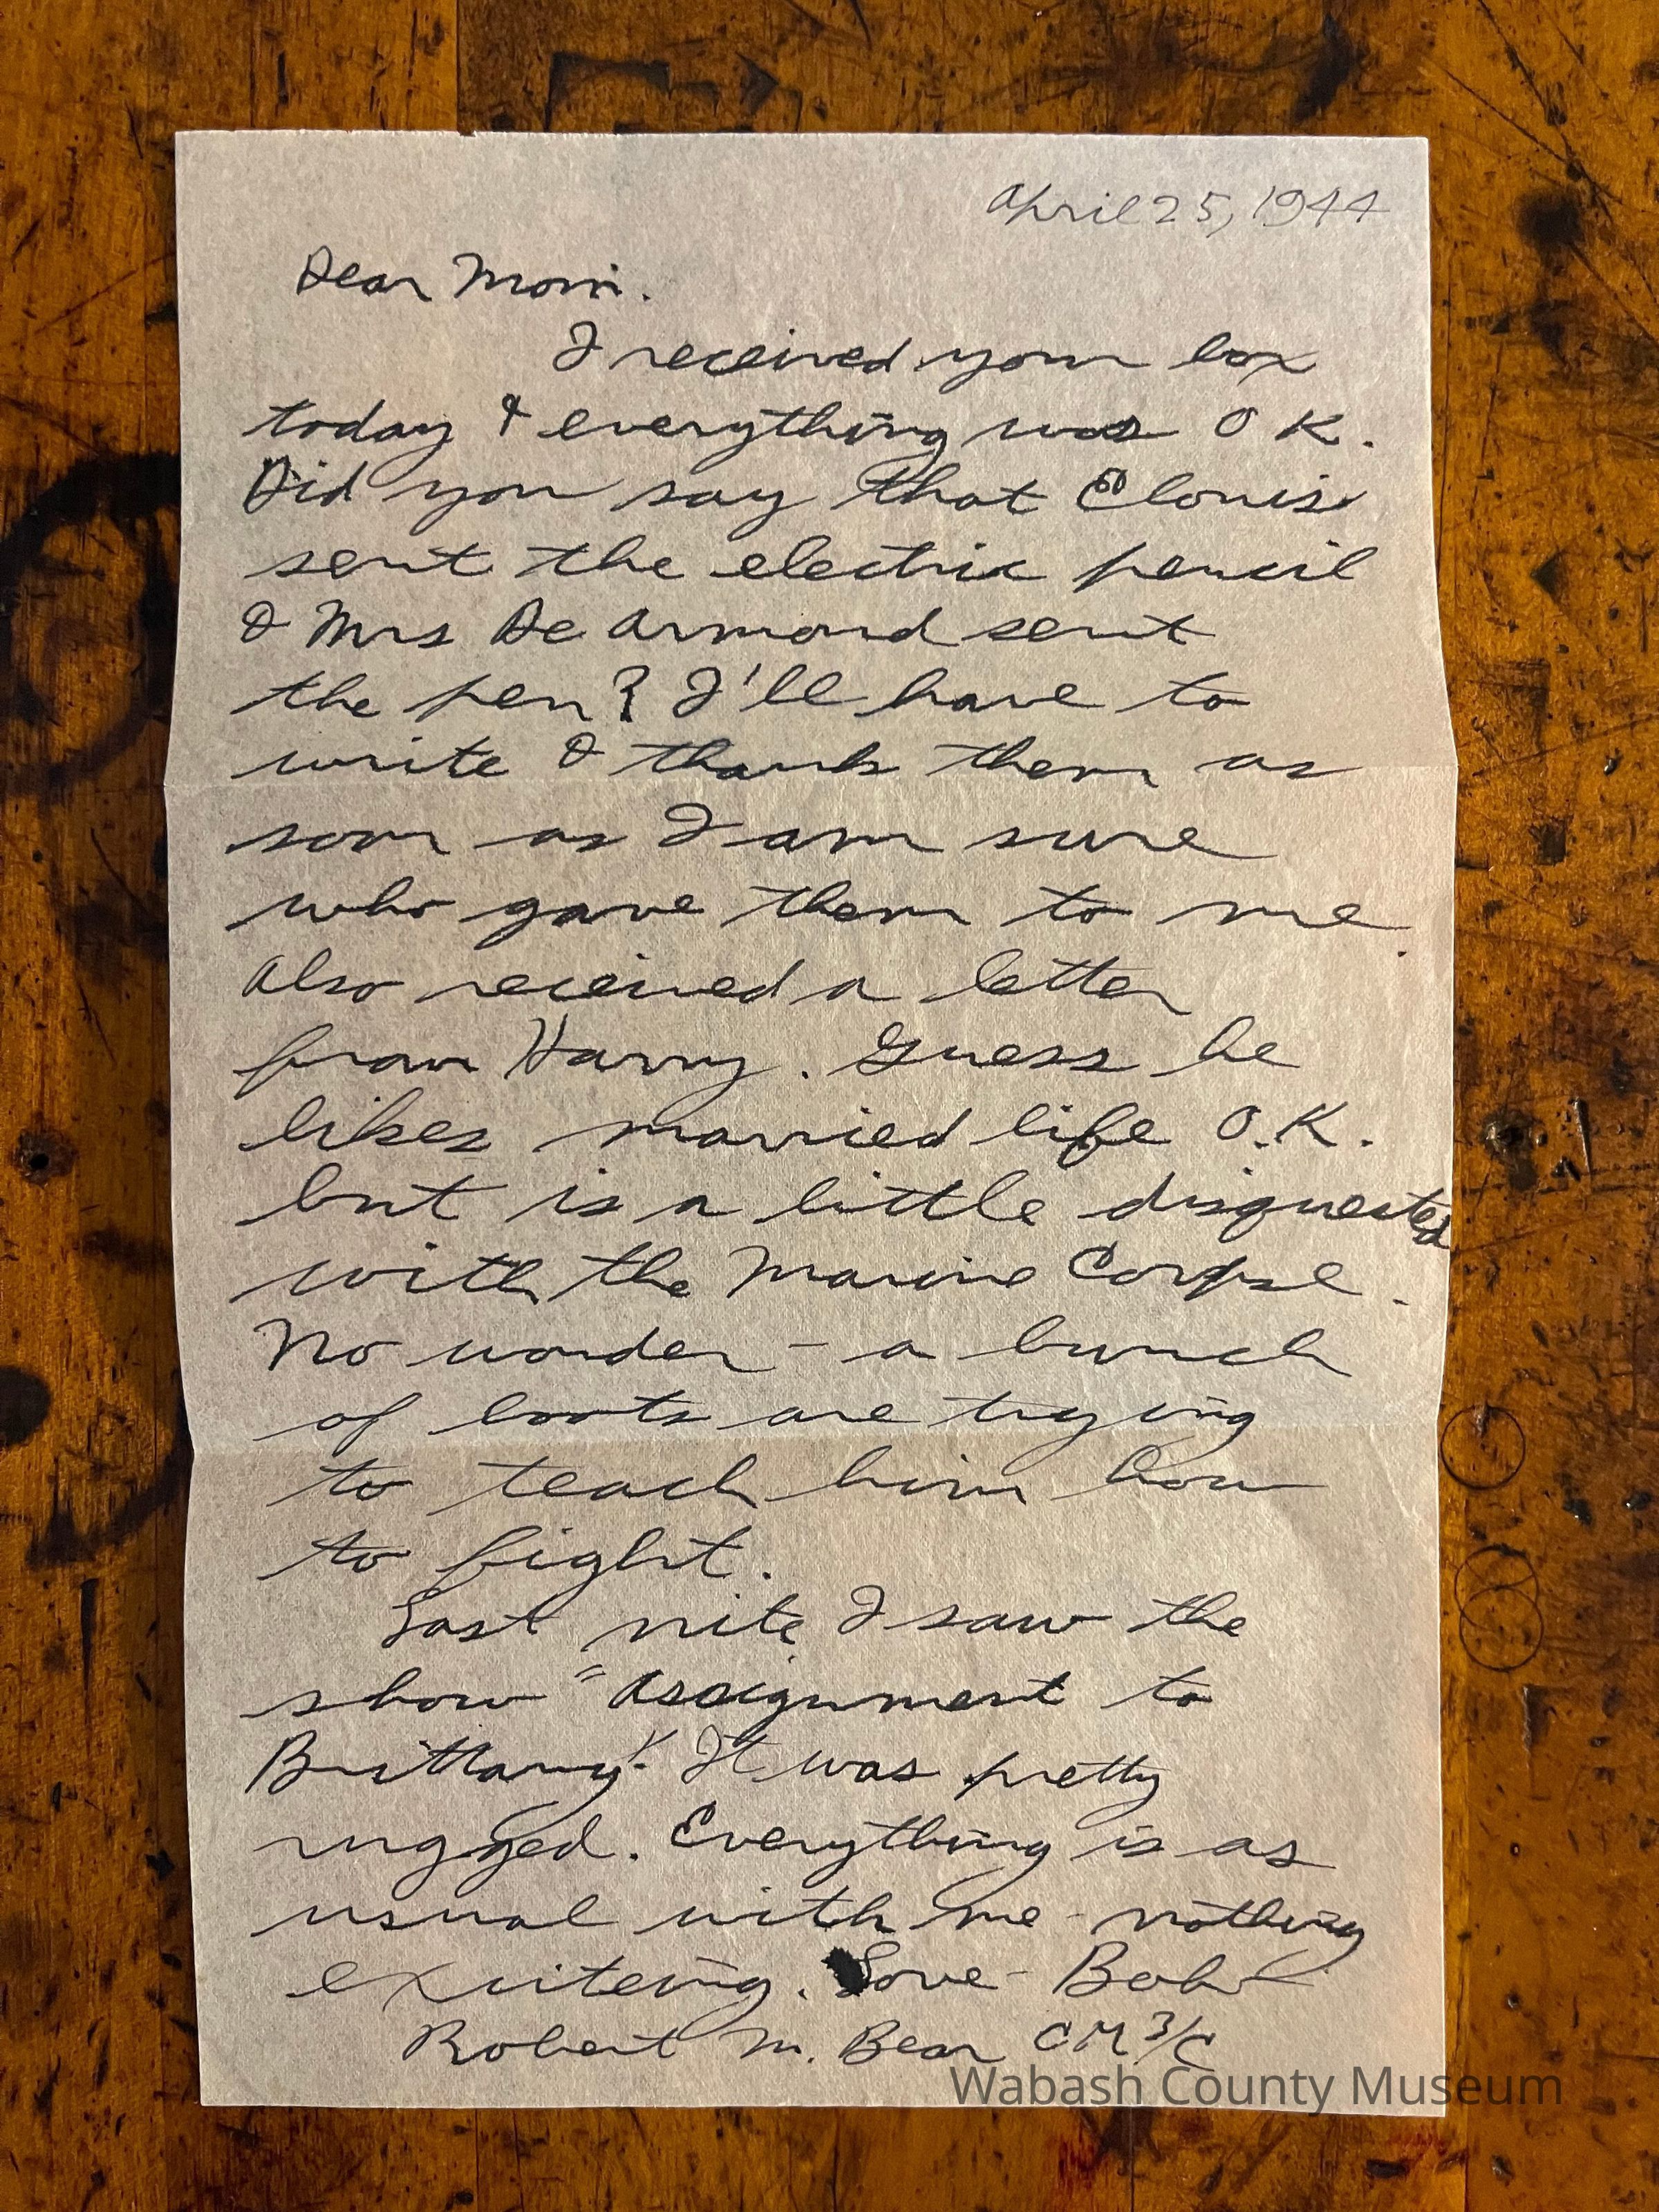 April 25, 1944
Dear Mom.
I received your box
today & everything was O K.
Did you say that Elouise
sent the electric pencil
& Mrs De Armond sent
the pen? I'll have to
write & thank them as
soon as I am sure
who gave them to me.
Also received a letter
from Harry. Guess he
likes married life O.K.
but is a little disguested
with the Marine Corpse.
No wonder - a bunch
of boots are trying
to teach him how
to fight.
Last nite I saw the
show "Assignment to
Brittany". It was pretty
rugged. Everything is as
usual with me - nothing
exciteing. Love - Bob
Robert M. Bear CM 3/C
Wabash County Museum